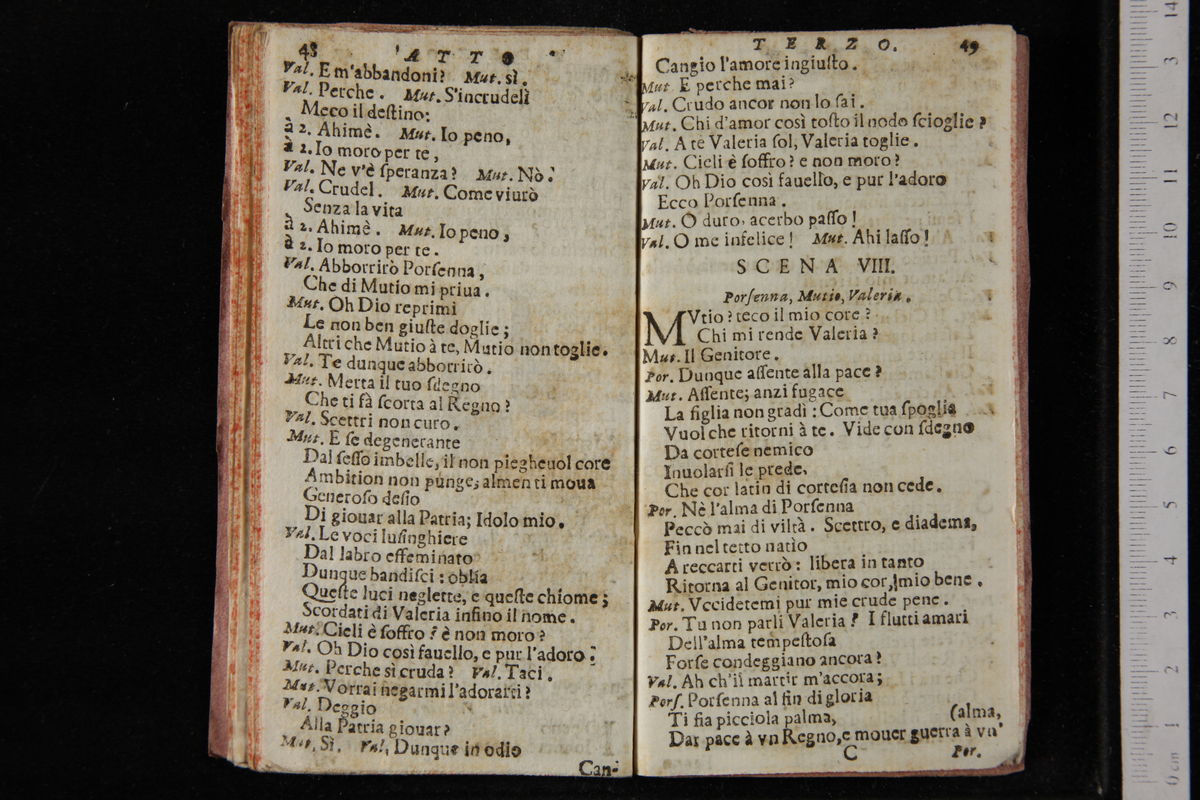 48 ATTO
Val. E m'abbandoni? Mut. sì.
Val. Perche. Mut. S'incrudelì
Meco il destino:
à 2. Ahimè. Mut. Io peno,
à 2. Io moro per te,
Val. Ne v'è ſperanza? Mut. Nò.
Val. Crudel. Mut. Come viurò
Senza la vita
à 2. Ahimè. Mut. Io peno,
à 2. Io moro per te.
Val. Abborrirò Porſenna,
Che di Mutio mi priua.
Mut. Oh Dio reprimi
Le non ben giuſte doglie;
Altri che Mutio à te, Mutio non toglie.
Val. Te dunque abborrirò.
Mut. Merta il tuo ſdegno
Che ti fà ſcorta al Regno?
Val. Scettri non curo.
Mut. E ſe degenerante
Dal ſeſſo imbelle, il non piegheuol core
Ambition non punge; almen ti moua
Generoſo deſio
Di giouar alla Patria; Idolo mio.
Val. Le voci luſinghiere
Dal labro effeminato
Dunque bandiſci: oblía
Queſte luci neglette, e queſte chiome;
Scordati di Valeria infino il nome.
Mut. Cieli è ſoffro? è non moro?
Val. Oh Dio così fauello, e pur l'adoro:
Mut. Perche sì cruda? Val. Taci.
Mut. Vorrai negarmi l'adorarti?
Val. Deggio
Alla Patria giouar?
Mut. Sì. Val. Dunque in odio
Can-
TERZO. 49
Cangio l'amore ingiuſto.
Mut E perche mai?
Val. Crudo ancor non lo ſai.
Mut. Chi d'amor così toſto il nodo ſcioglie?
Val. A te Valeria ſol, Valeria toglie.
Mut. Cieli è ſoffro? e non moro?
Val. Oh Dio così fauello, e pur l'adoro
Ecco Porſenna.
Mut. O duro, acerbo paſſo!
Val. O me infelice! Mut. Ahi laſſo!
SCENA VIII.
Porſenna, Mutio, Valeria.
MVtio? teco il mio core?
Chi mi rende Valeria?
Mut. Il Genitore.
Por. Dunque aſſente alla pace?
Mut. Aſſente; anzi fugace
La figlia non gradì: Come tua ſpoglia
Vuol che ritorni à te. Vide con ſdegno
Da corteſe nemico
Inuolarſi le prede,
Che cor latin di corteſia non cede.
Por. Nè l'alma di Porſenna
Peccò mai di viltà. Scettro, e diadema,
Fin nel tetto natìo
A reccarti verrò: libera in tanto
Ritorna al Genitor, mio cor, mio bene.
Mut. Vccidetemi pur mie crude pene.
Por. Tu non parli Valeria? I flutti amari
Dell'alma tempeſtoſa
Forſe condeggiano ancora?
Val. Ah ch'il martir m'accora;
Porſ. Porſenna al fin di gloria
Ti fia picciola palma, (alma,
Dar pace à vn Regno, e mouer guerra à vn'
C Por.